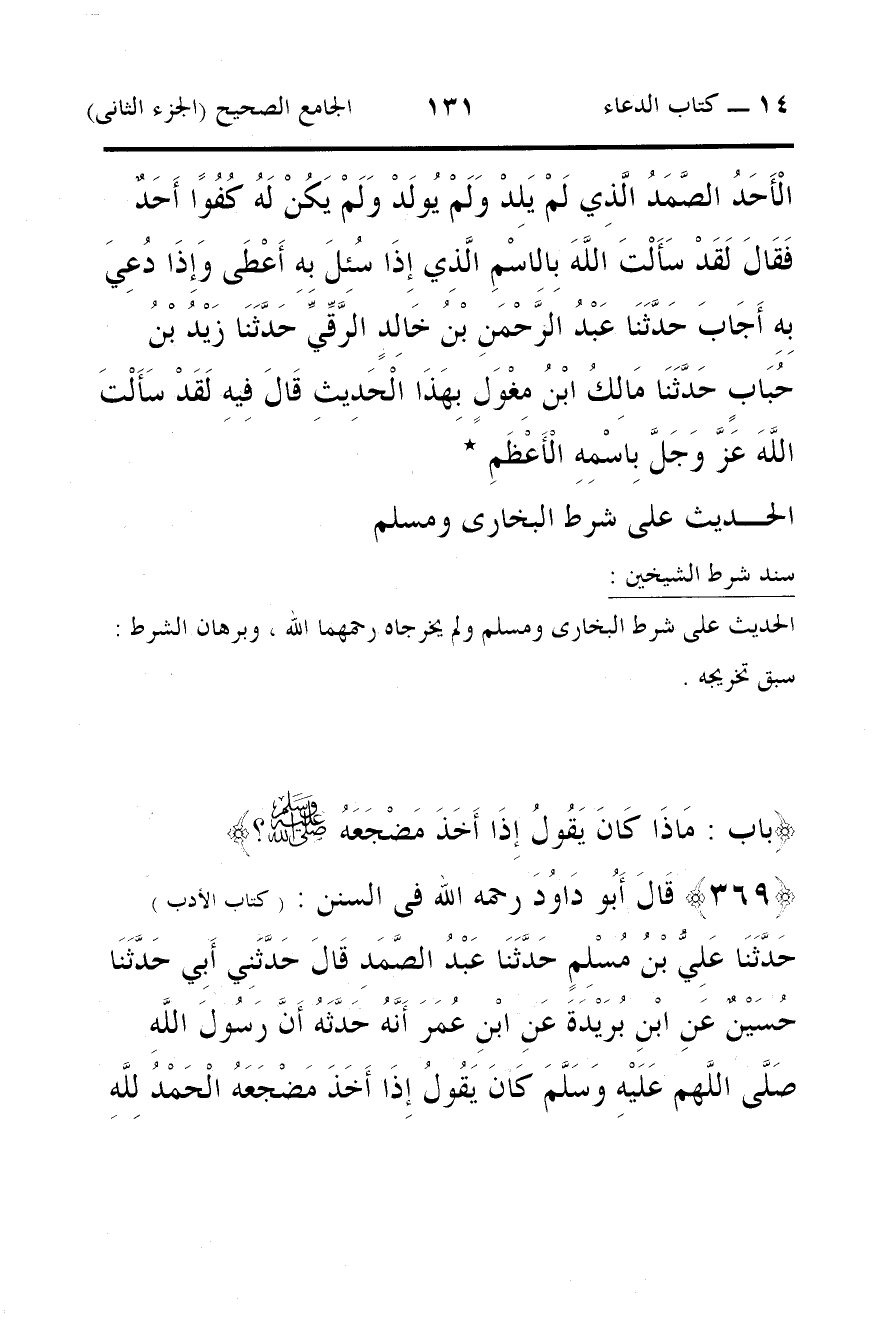 ١٤ ــ كتاب الدعاء ١٣١ الجامع الصحيح (الجزء الثانى)
الْأَحَدُ الصَّمَدُ الَّذِي لَمْ يَلِدْ وَلَمْ يُولَدْ وَلَمْ يَكُنْ لَهُ كُفُوًا أَحَدٌ
فَقَالَ لَقَدْ سَأَلْتَ اللَّهَ بِالِاسْمِ الَّذِي إِذَا سُئِلَ بِهِ أَعْطَى وَإِذَا دُعِيَ
بِهِ أَجَابَ حَدَّثَنَا عَبْدُ الرَّحْمَنِ بْنُ خَالِدٍ الرَّقِّيُّ حَدَّثَنَا زَيْدُ بْنُ
حُبَابٍ حَدَّثَنَا مَالِكُ ابْنُ مِغْوَلٍ بِهَذَا الْحَدِيثِ قَالَ فِيهِ لَقَدْ سَأَلْتَ
اللَّهَ عَزَّ وَجَلَّ بِاسْمِهِ الْأَعْظَمِ *
الحـــديث على شرط البخارى ومسلم
سند شرط الشيخين :
الحديث على شرط البخارى ومسلم ولم يخرجاه رحمهما الله ، وبرهان الشرط :
سبق تخريجه .
﴿باب : مَاذَا كَانَ يَقُولُ إِذَا أَخَذَ مَضْجَعَهُ ﷺ ؟﴾
﴿٣٦٩﴾ قَالَ أَبُو دَاوُدَ رحمه الله فى السنن : ( كتاب الأدب )
حَدَّثَنَا عَلِيُّ بْنُ مُسْلِمٍ حَدَّثَنَا عَبْدُ الصَّمَدِ قَالَ حَدَّثَنِي أَبِي حَدَّثَنَا
حُسَيْنٌ عَنِ ابْنِ بُرَيْدَةَ عَنِ ابْنِ عُمَرَ أَنَّهُ حَدَّثَهُ أَنَّ رَسُولَ اللَّهِ
صَلَّى اللَّهم عَلَيْهِ وَسَلَّمَ كَانَ يَقُولُ إِذَا أَخَذَ مَضْجَعَهُ الْحَمْدُ لِلَّهِ